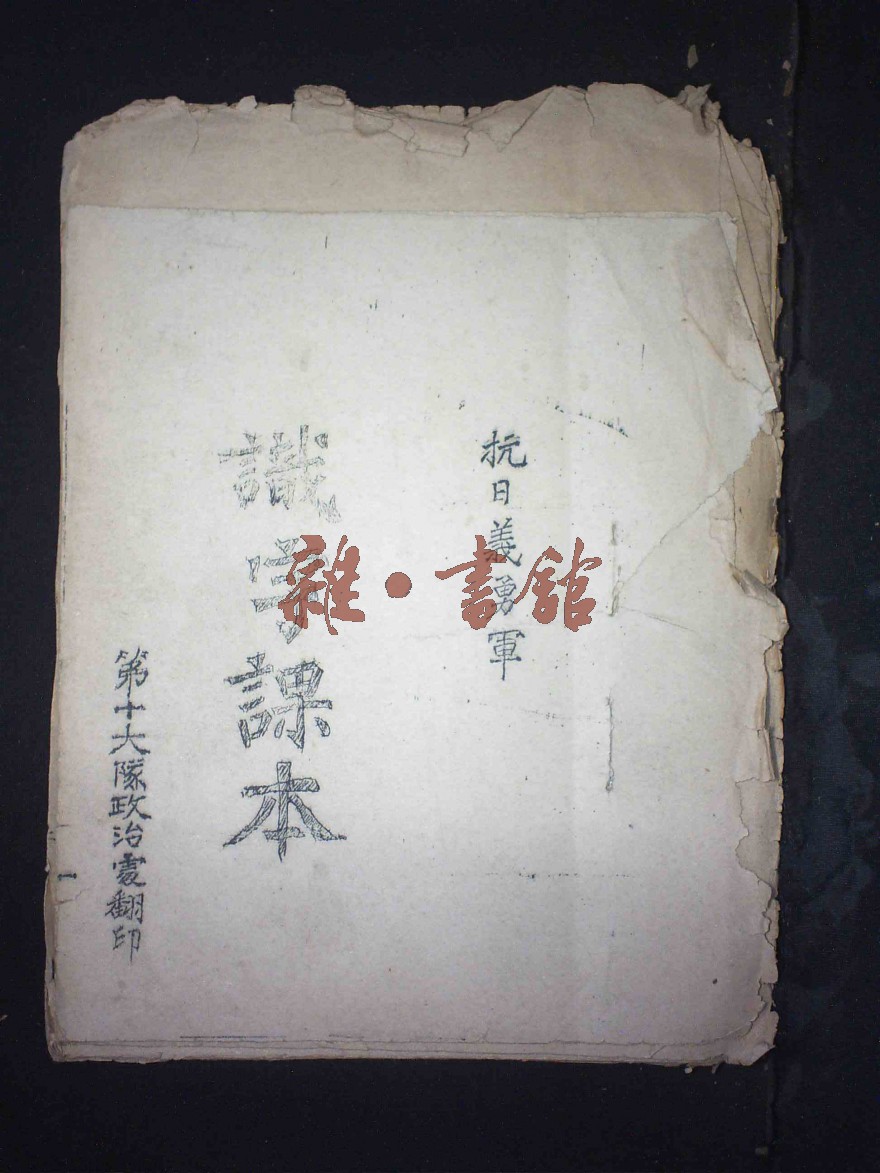 抗日義勇軍
識字課本
第十大隊政治處翻印
雜·書館